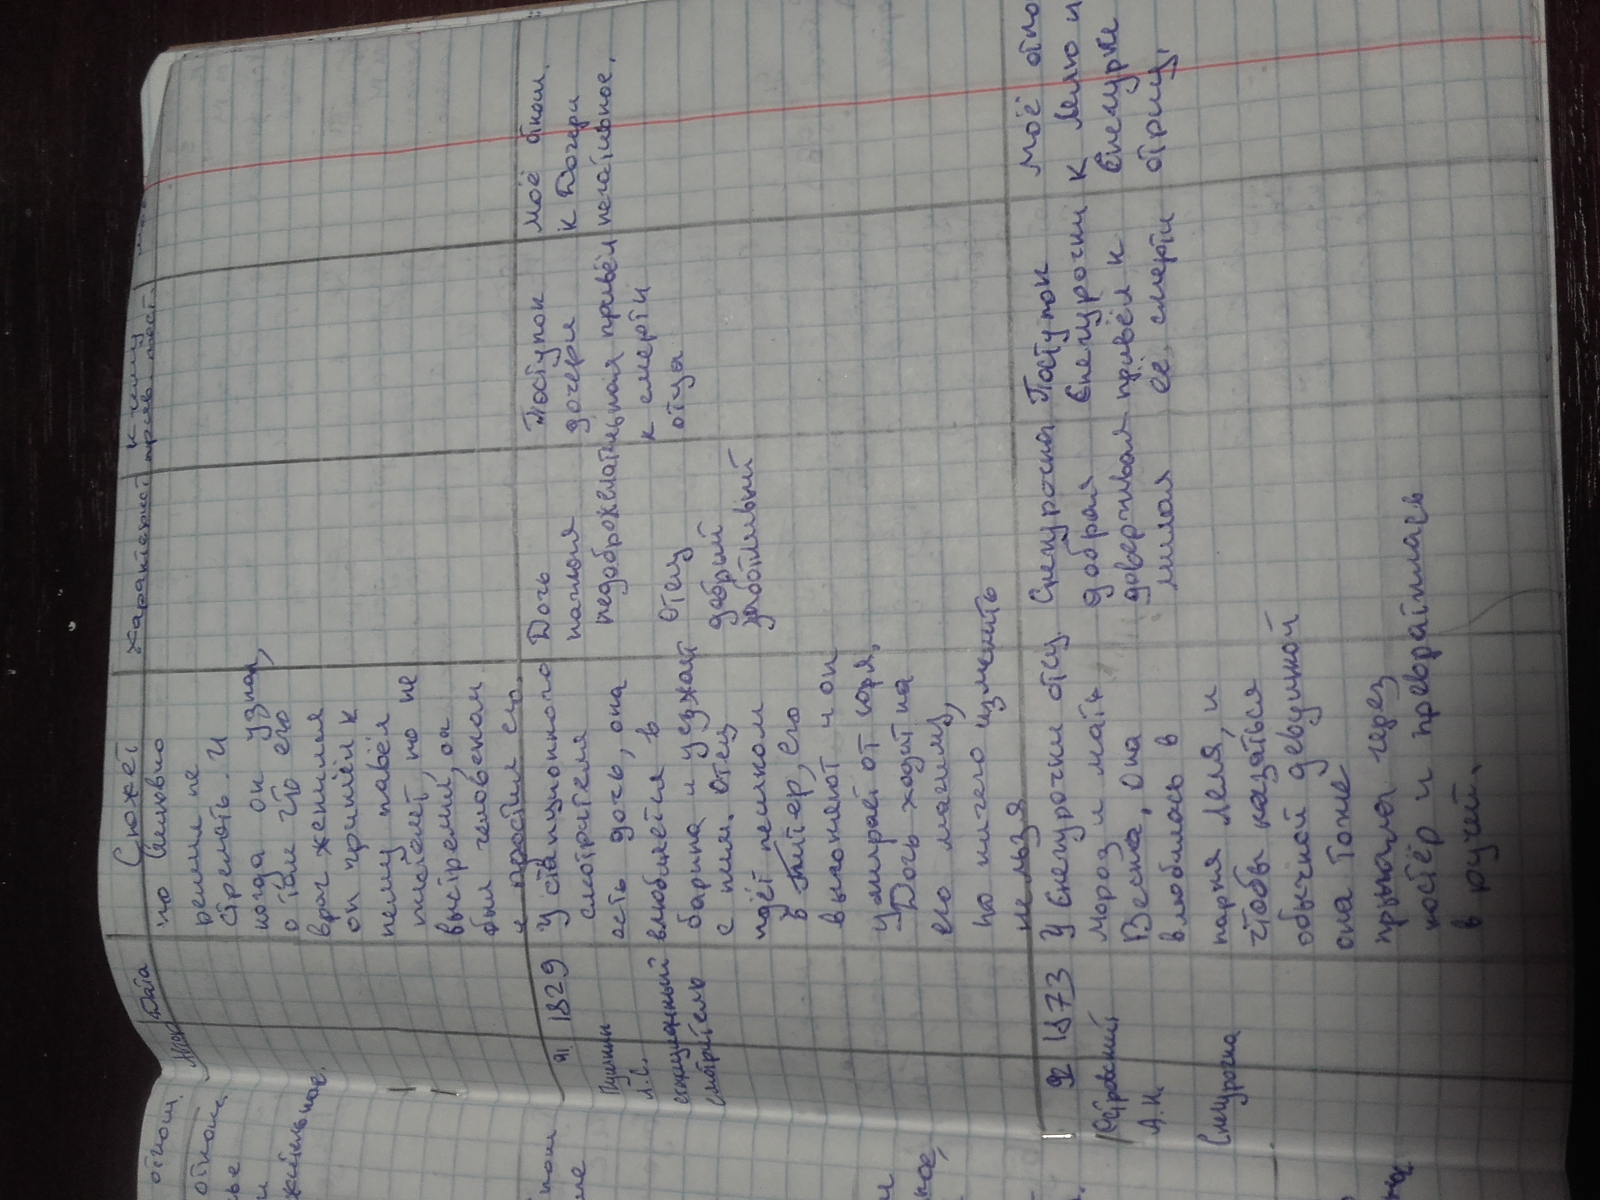 Дата
Сюжет
но Сильвио
решил не
стрелять. И
когда он узнал,
о том что его
враг женился
он пришёл к
нему навёл
пистолет, но не
выстрелил, он
был человеком
и простил его.
91
1829
Пушкин
А.С.
станционный
смотритель
У станционного
смотрителя
есть дочь, она
влюбляется в
барина и уезжает
с ним. Отец
идёт пешком
в Питер, его
выгоняют и он
умирает от горя.
Дочь ходит на
его могилу,
но ничего изменить
нельзя
Дочь
наглая
недоброжелательная
Отец
добрый
заботливый
Поступок
дочери
привёл
к смерти
отца
Моё отнош.
к Дочери
негативное.
92
1873
Островский
А.Н.
Снегурочка
У Снегурочки отец
мороз и мать
Весна, она
влюбилась в
парня Леля, и
чтобы казаться
обычной девушкой
она тоже
прыгала через
костёр и превратилась
в ручей.
Снегурочка
добрая
доверчивая
милая
Поступок
Снегурочки
привёл к
её смерти
Моё отно
к Лелю и
Снегурке
отриц.